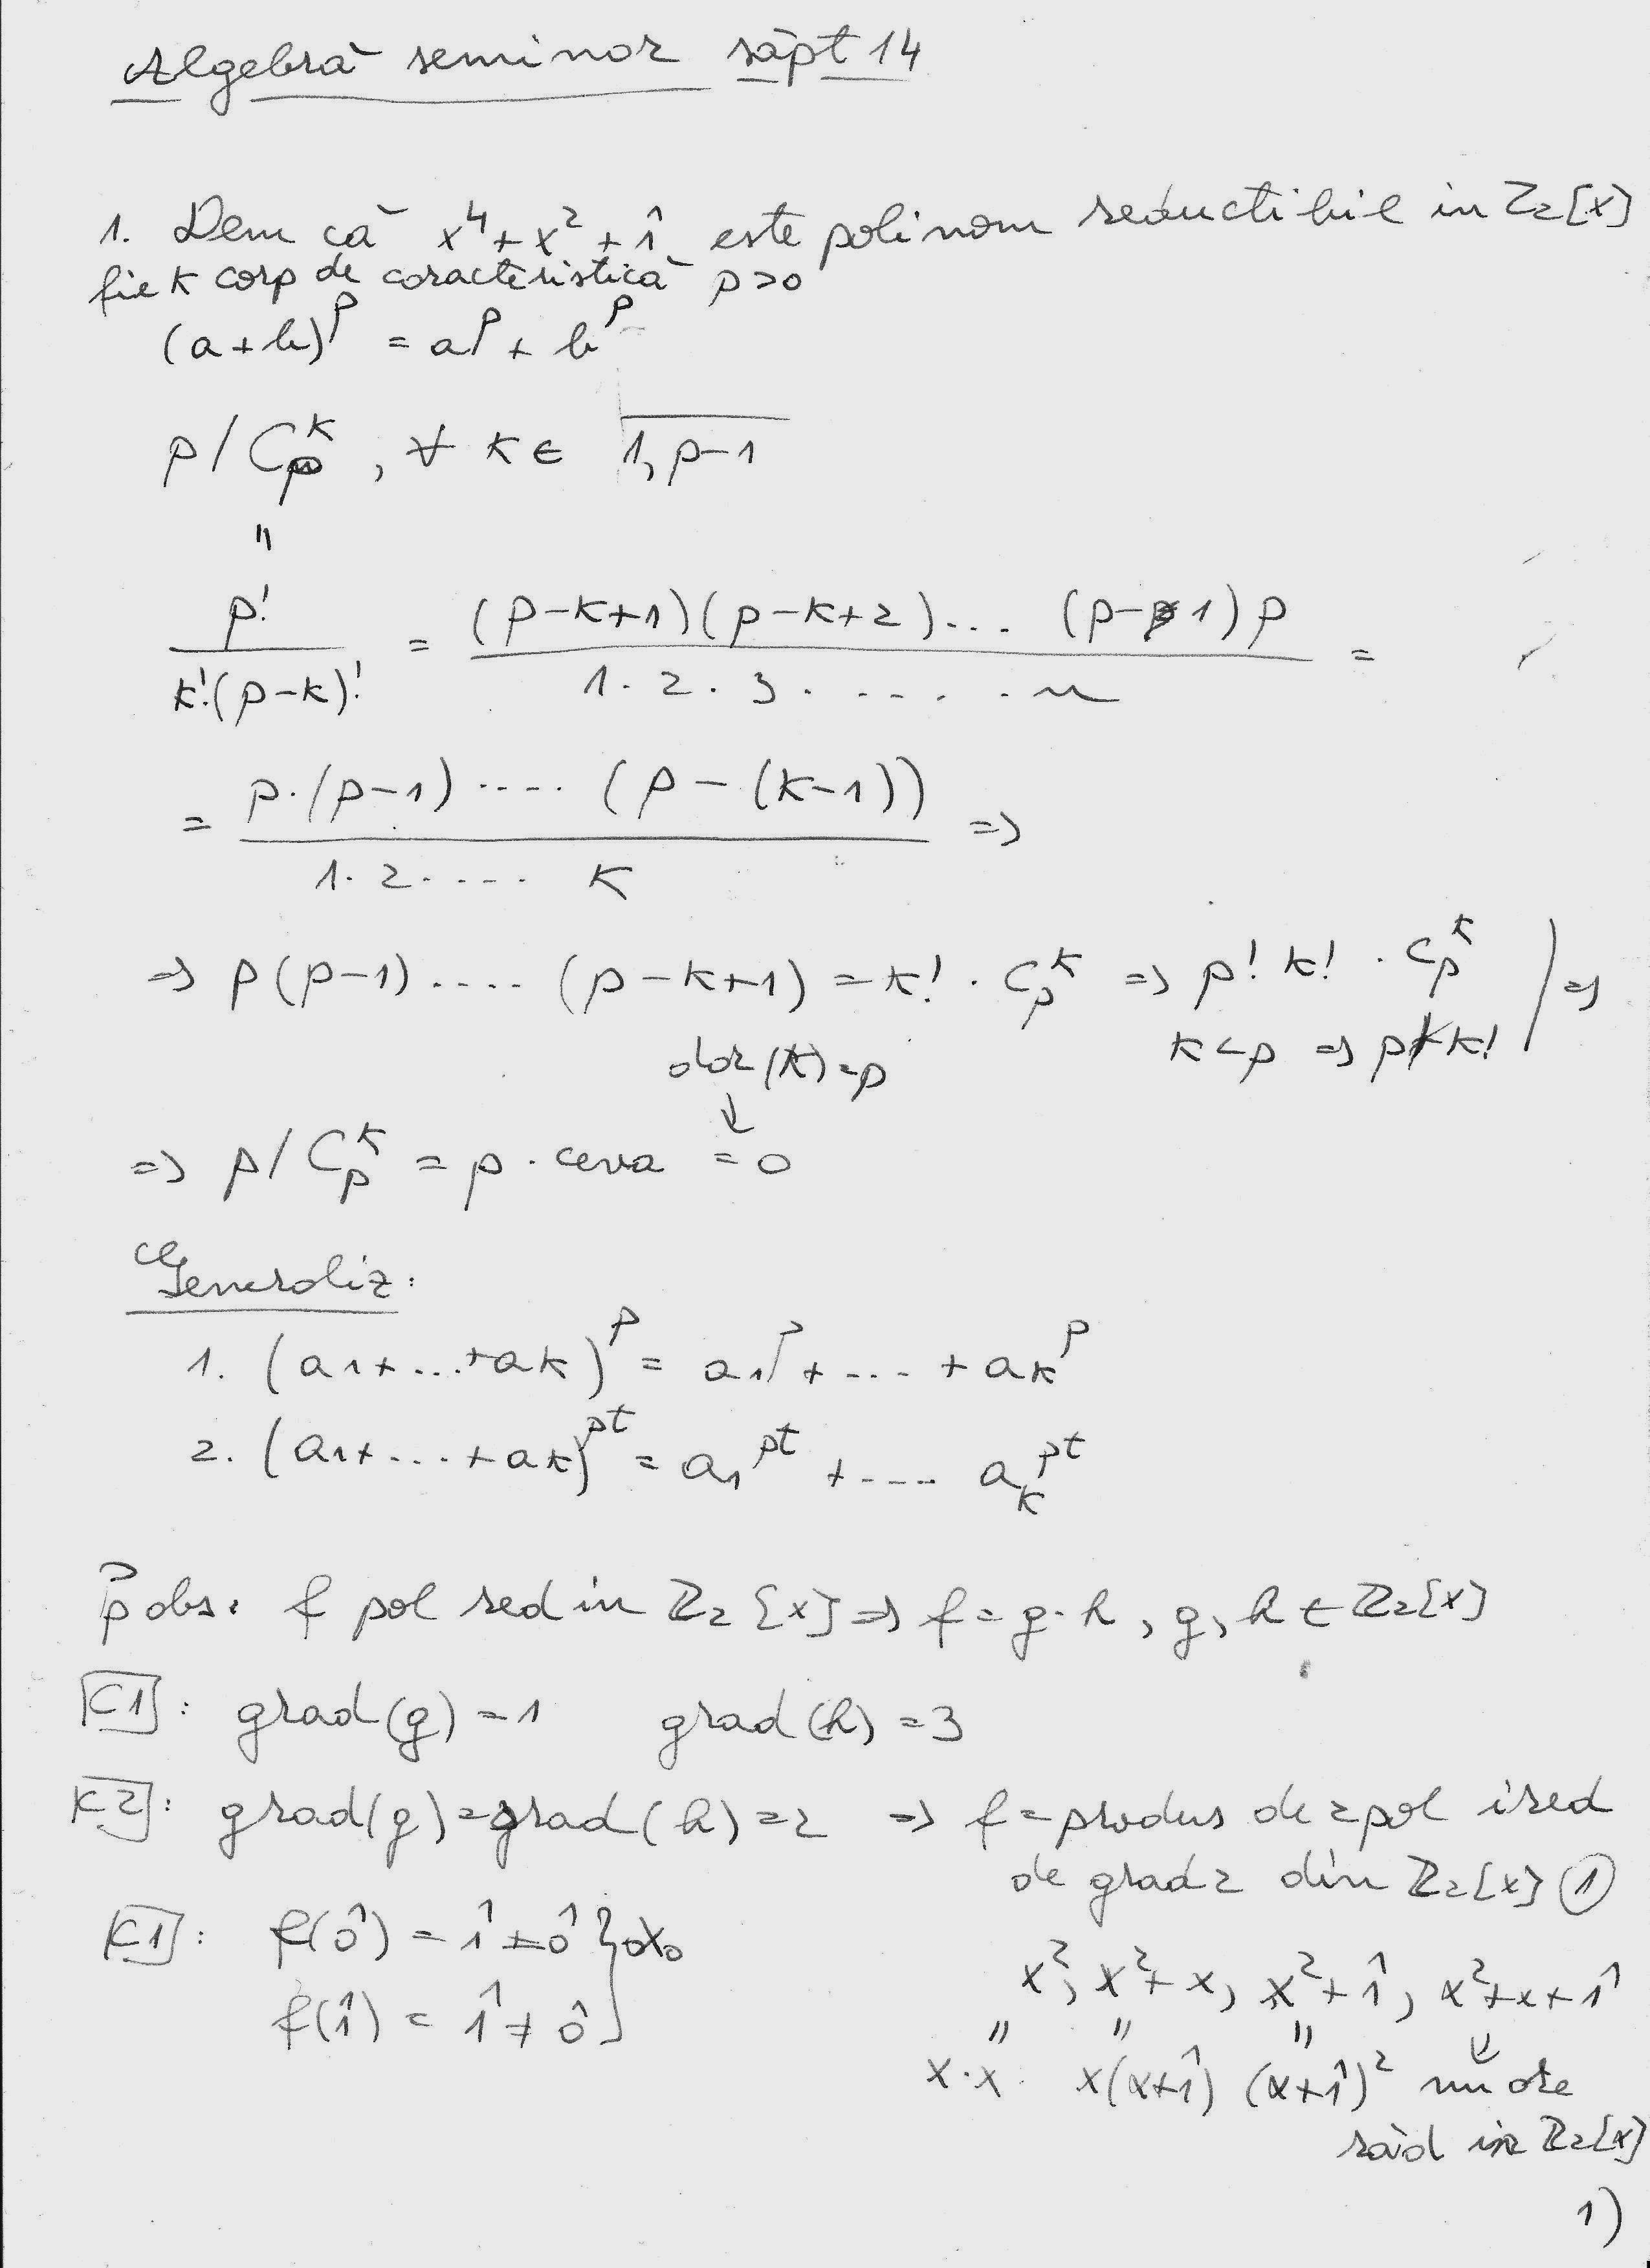 Algebră seminar săpt 14
1. Dem că x⁴+x²+1̂ este polinom reductibil in Z₂[x]
fie K corp de caracteristică p>0
(a+b)^p = a^p + b^p
p / C_p^k , ∀ k ∈ 1,p-1
"
p! / k!(p-k)! = (p-k+1)(p-k+2)... (p-1)p / 1·2·3·.....n =
= p·(p-1)····(p-(k-1)) / 1·2···· k =>
=> p(p-1)····(p-k+1) = k! · C_p^k => p! k! · C_p^k | =>
k<p => p∤k!
car(K)=p
↓
=> p / C_p^k = p · ceva = 0
Generaliz:
1. (a1+...+ak)^p = a1^p + ... + ak^p
2. (a1+...+ak)^pt = a1^pt + .... ak^pt
p obs: f pol red in Z₂[x] => f = g·h , g, h ∈ Z₂[x]
C1: grad(g) = 1 grad(h) = 3
C2: grad(g)=grad(h)=2 => f=produs de 2 pol ired
de grad 2 din Z₂[x] ①
C1: f(0̂) = 1̂ ≠ 0̂ }
x², x²+x, x²+1̂, x²+x+1̂
f(1̂) = 1̂ ≠ 0̂
" " " ↓
x·x x(x+1̂) (x+1̂)² nu are
răd in Z₂[x]
1)